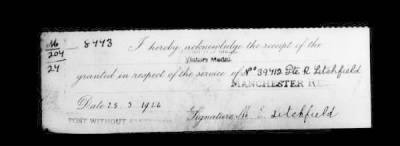 No 8443
204
24
I hereby acknowledge the receipt of the
Victory Medal
granted in respect of the service of No 39412 Pte R Litchfield
MANCHESTER R
Date 28. 3. 1922
POST WITHOUT
Signature Mr E. Litchfield